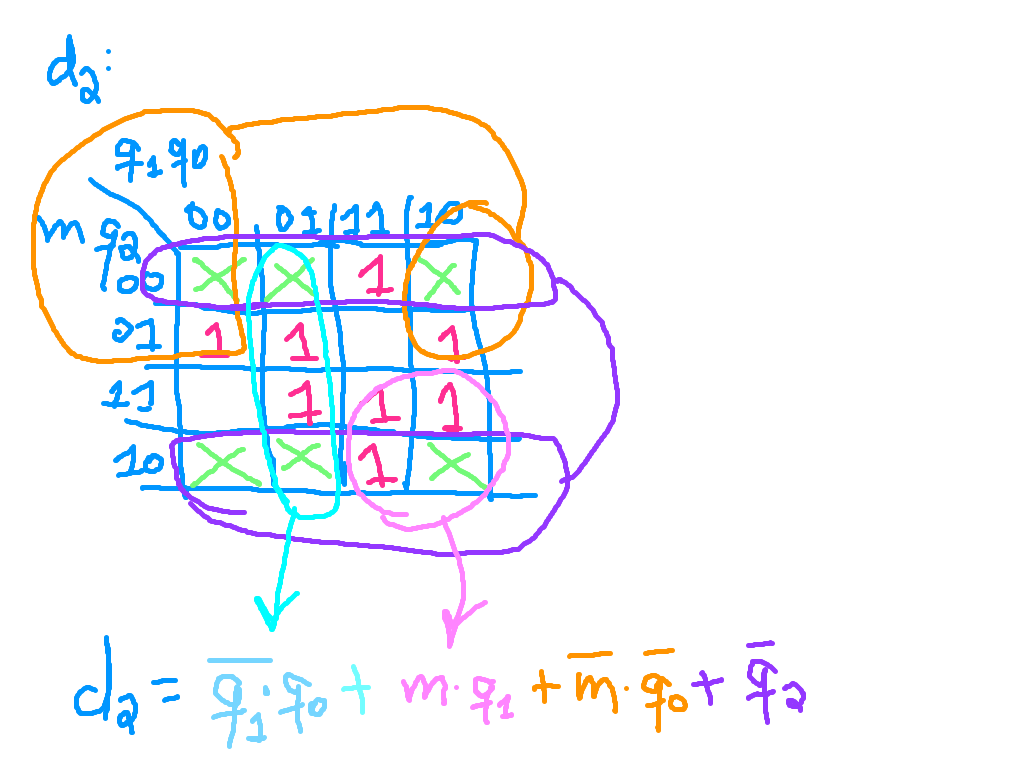 d₂:
q₁q₀
m q₂ 00 01 11 10
00 X X 1 X
01 1 1 1
11 1 1 1
10 X X 1 X
d₂ = q̅₁·q₀ + m·q₁ + m̅·q̅₀ + q̅₂